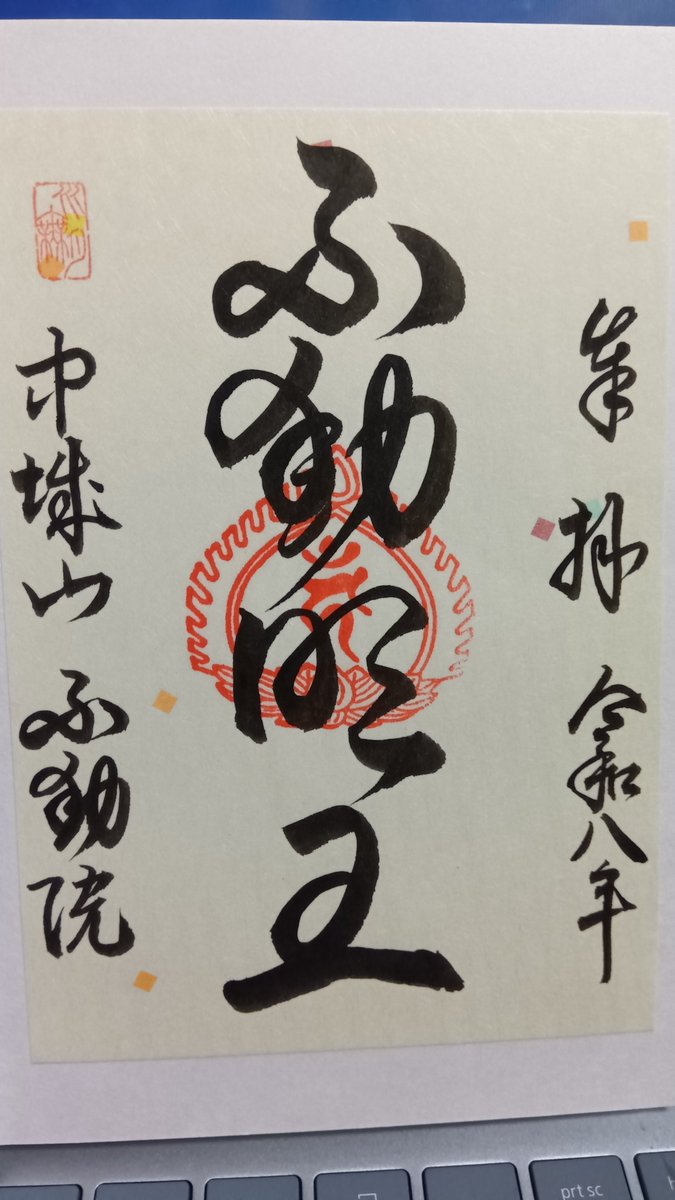 奉拝 令和八年
不動明王
中城山 不動院
prt sc